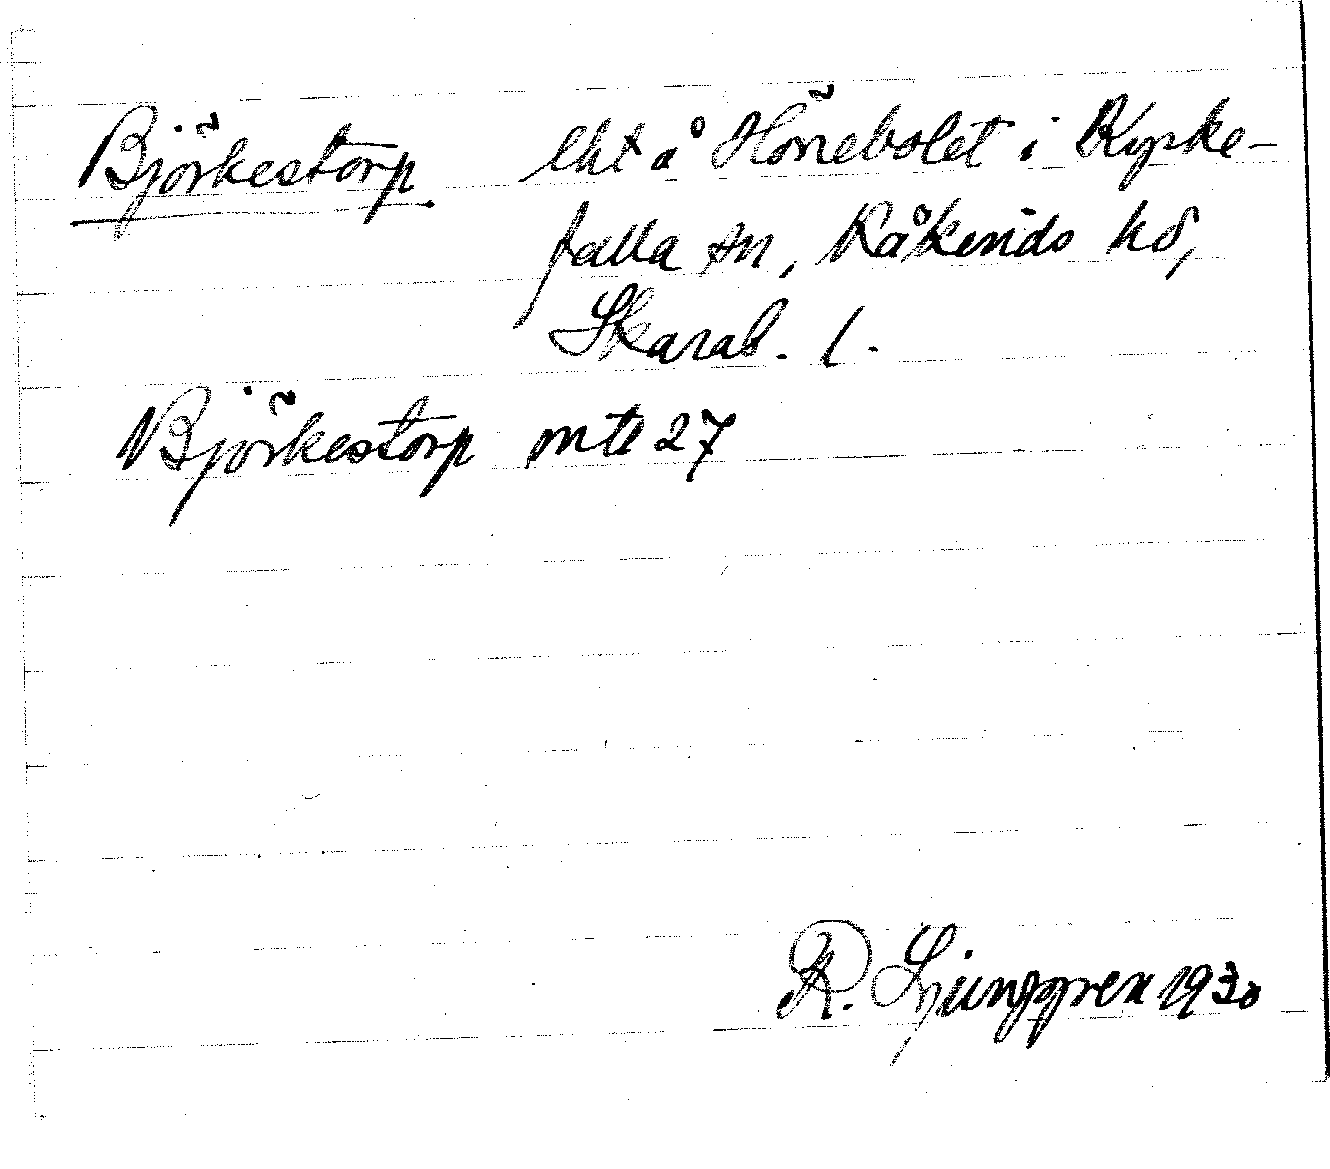 Björkestorp lht å Hönebolet i Kyrke-
falla sn, Kåkinds hd,
Skarab. l.
Björkestorp mtl 27
R. Ljunggren 1930